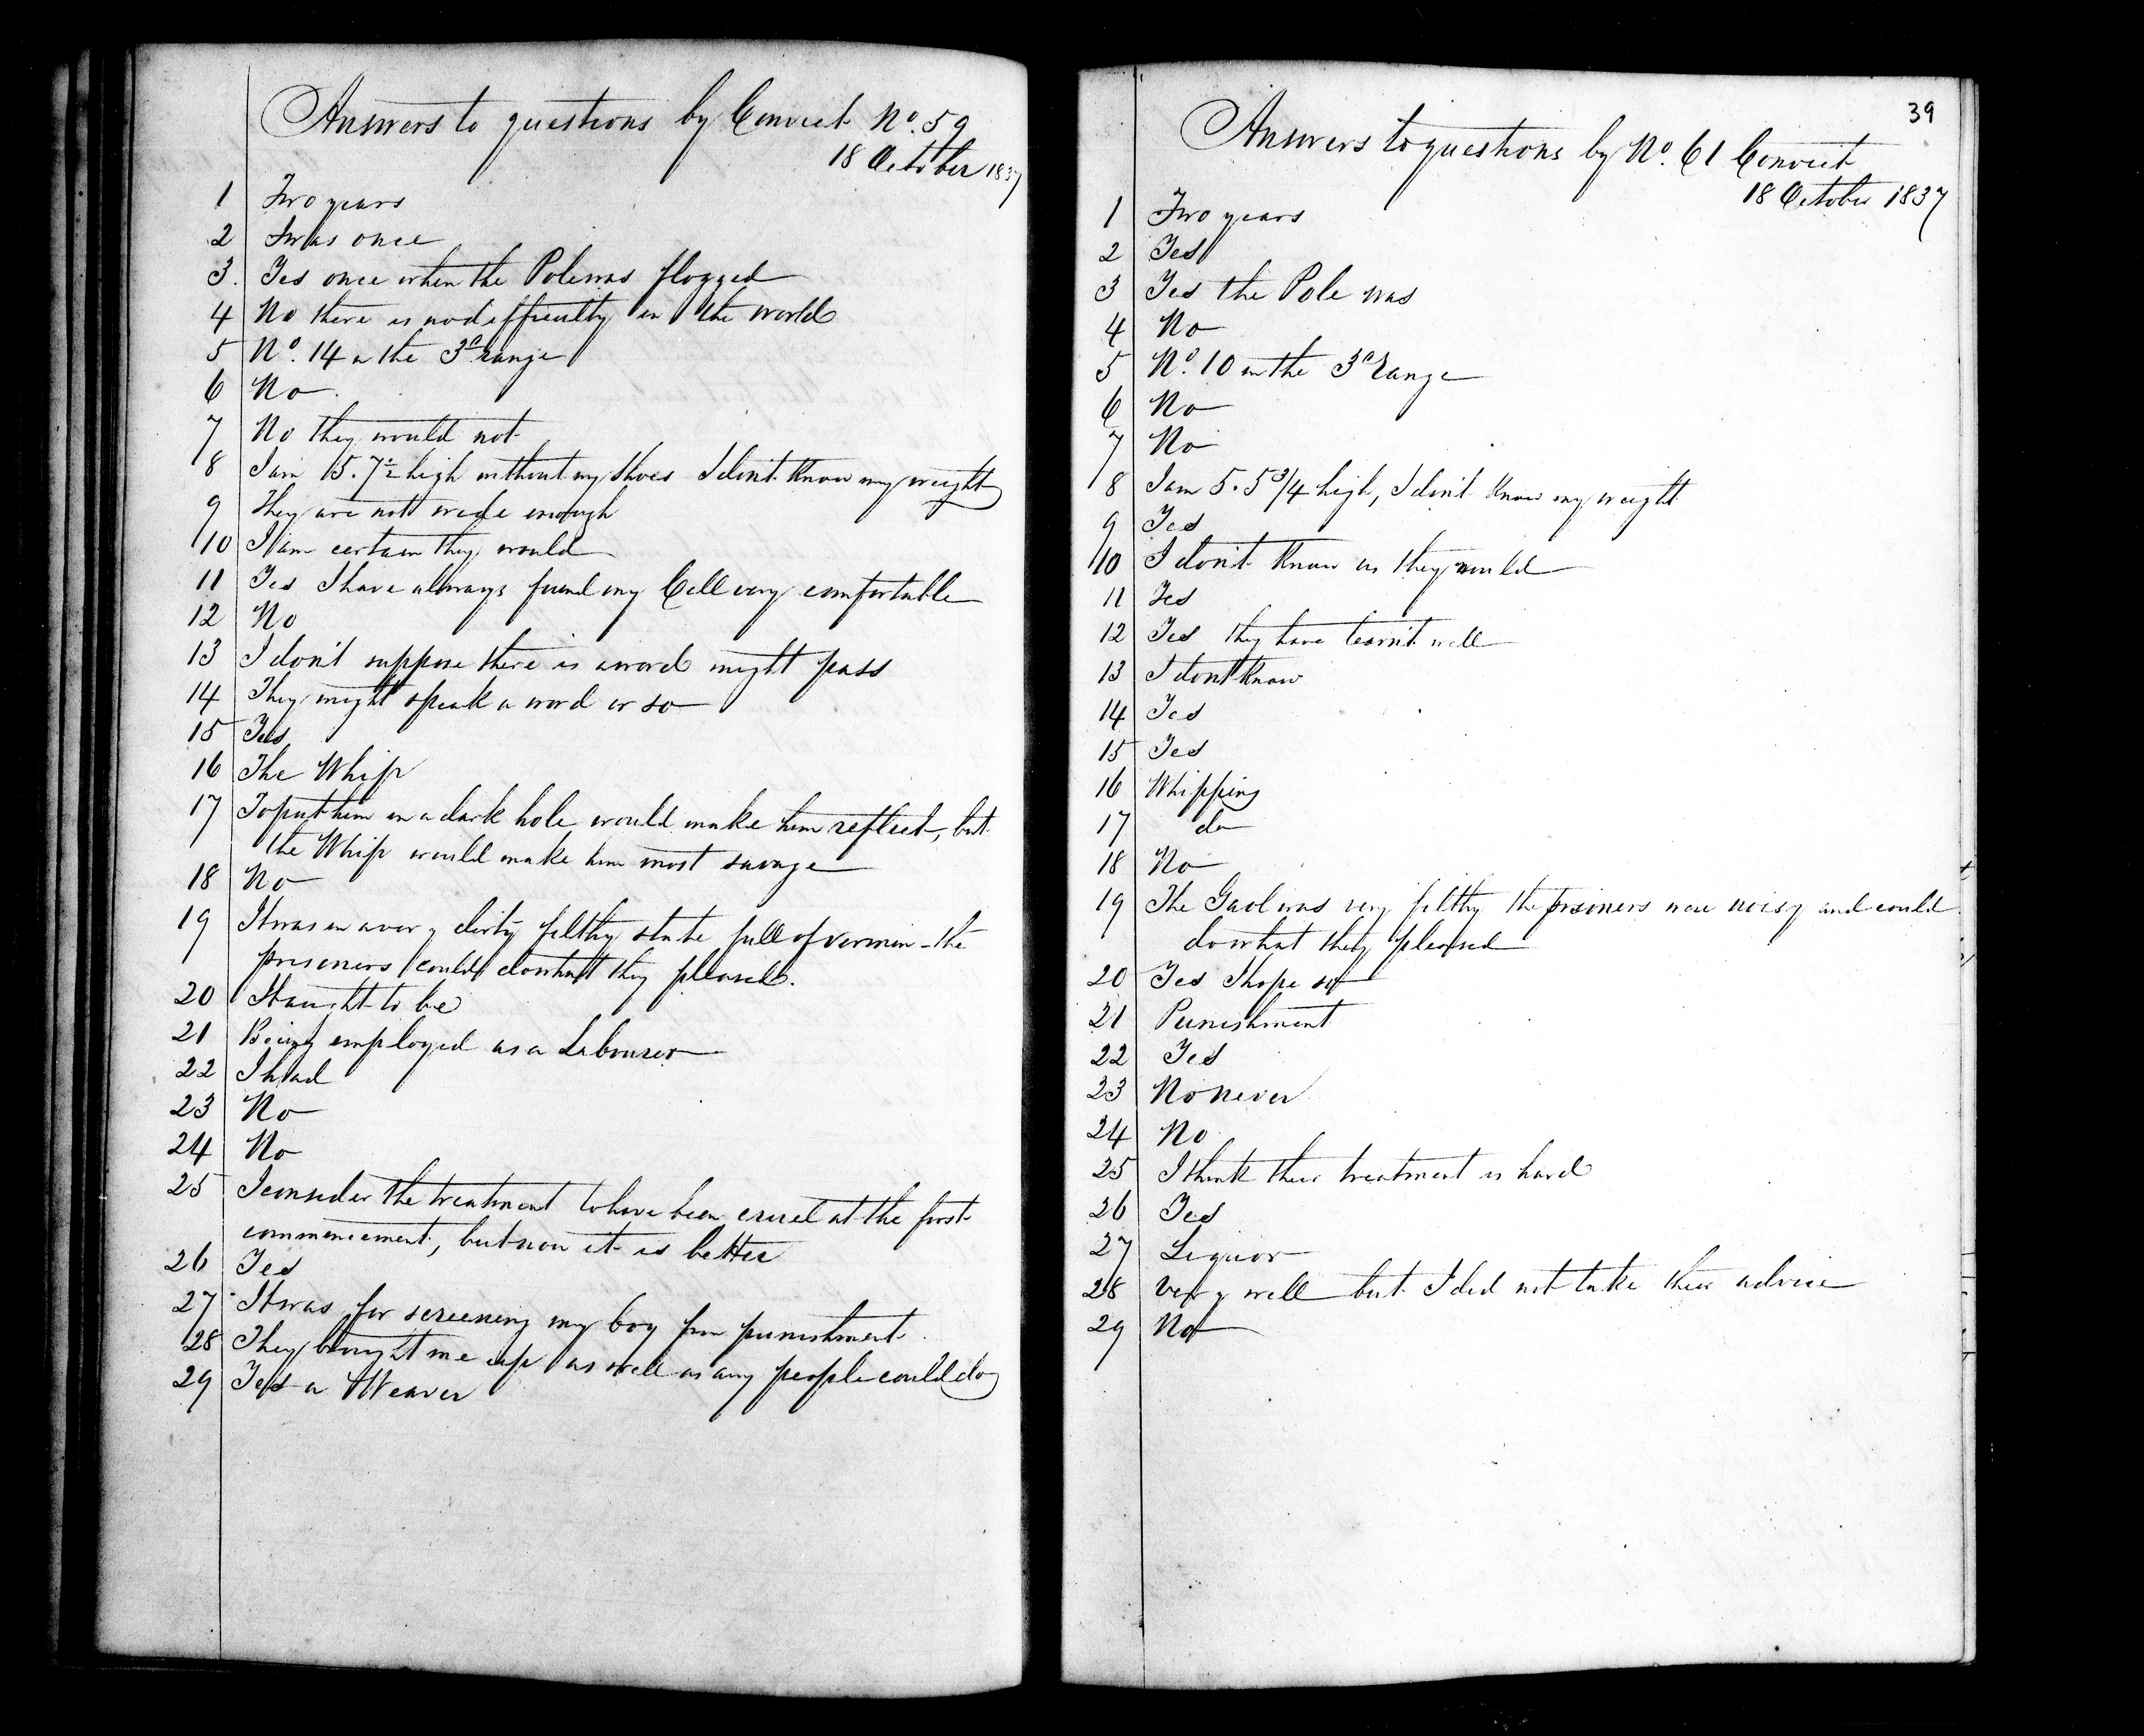 Answers to questions by Convict No. 59
18 October 1837
1 Two years
2 I was once
3. Yes once when the Pole was flogged
4 No there is no difficulty in the world
5 No. 14 in the 3d range
6 No
7 No they would not
8 I am 5.7½ high without my shoes I don't know my weight
9 They are not wide enough
10 I am certain they would
11 Yes I have always found my Cell very comfortable
12 No
13 I don't suppose there is a word might pass
14 They might speak a word or so
15 Yes
16 The Whip
17 To put him in a dark hole would make him reflect, but
the Whip would make him most savage
18 No
19 It was in a very dirty filthy state full of vermin - the
prisoners could do what they pleased.
20 It aught to be
21 Being employed as a Labourer
22 I had
23 No
24 No
25 I consider the treatment to have been cruel at the first
commencement, but now it is better
26 Yes
27 It was for screening my boy from punishment.
28 They brought me up as well as any people could do
29 Yes a Weaver
39
Answers to questions by No. 61 Convict
18 October 1837
1 Two years
2 Yes
3 Yes the Pole was
4 No
5 No. 10 in the 3d range
6 No
7 No
8 I am 5.5¾ high, I don't know my weight
9 Yes
10 I don't know as they would
11 Yes
12 Yes they have learn't well
13 I dont know
14 Yes
15 Yes
16 Whipping
17 do
18 No
19 The Gaol was very filthy the prisoners were noisy and could
do what they pleased
20 Yes I hope so
21 Punishment
22 Yes
23 No never
24 No
25 I think their treatment is hard
26 Yes
27 Liquor
28 very well but I did not take their advice
29 No